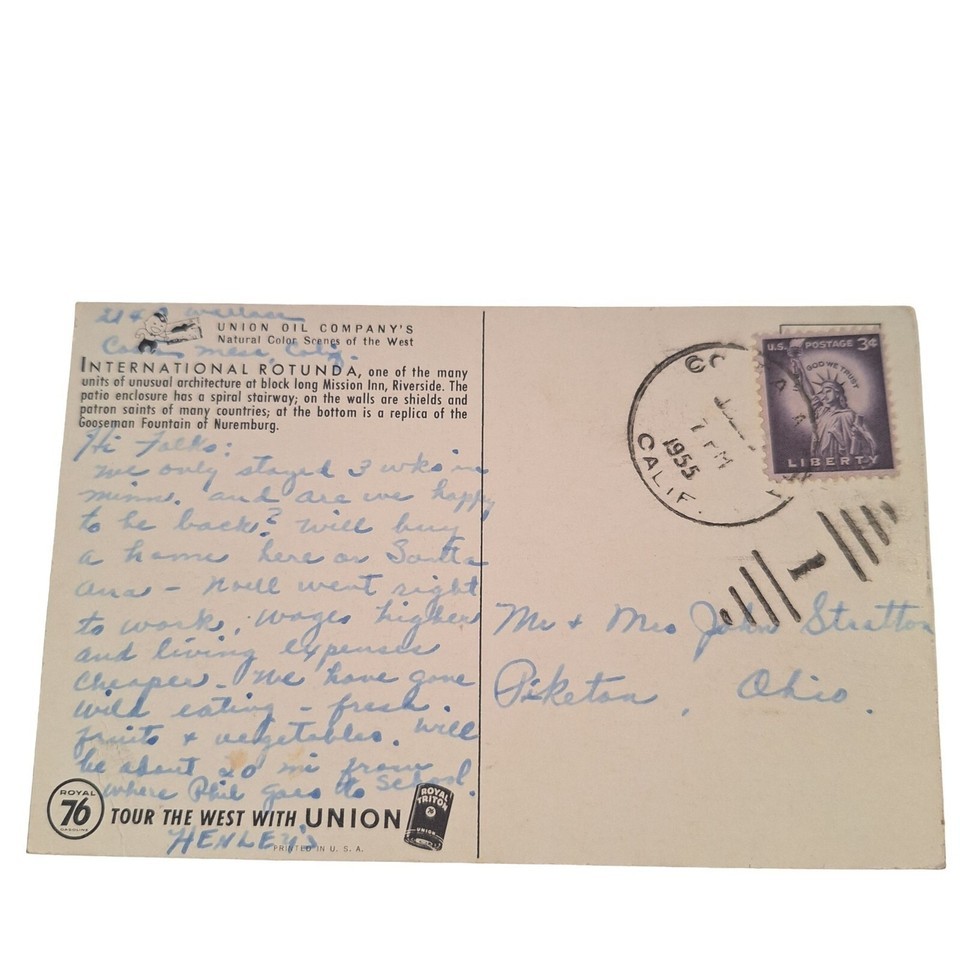 Wallace
Costa Mesa, Calif.
UNION OIL COMPANY'S
Natural Color Scenes of the West
INTERNATIONAL ROTUNDA, one of the many
units of unusual architecture at block long Mission Inn, Riverside. The
patio enclosure has a spiral stairway; on the walls are shields and
patron saints of many countries; at the bottom is a replica of the
Gooseman Fountain of Nuremburg.
Hi Folks:
We only stayed 3 wks in
Minn. and are we happy
to be back? Will buy
a home here or Santa
Ana - Noell went right
to work, wages higher
and living expenses
cheaper - We have gone
wild eating - fresh
fruits & vegetables. Will
be about 20 mi from
where Phil goes to School.
HENLEY'S
ROYAL
76
GASOLINE
TOUR THE WEST WITH UNION
ROYAL
TRITON
UNION
PRINTED IN U. S. A.
PM
1955
CALIF.
U.S. POSTAGE 3¢
IN GOD WE TRUST
LIBERTY
Mr & Mrs John Stratton
Piketon, Ohio.